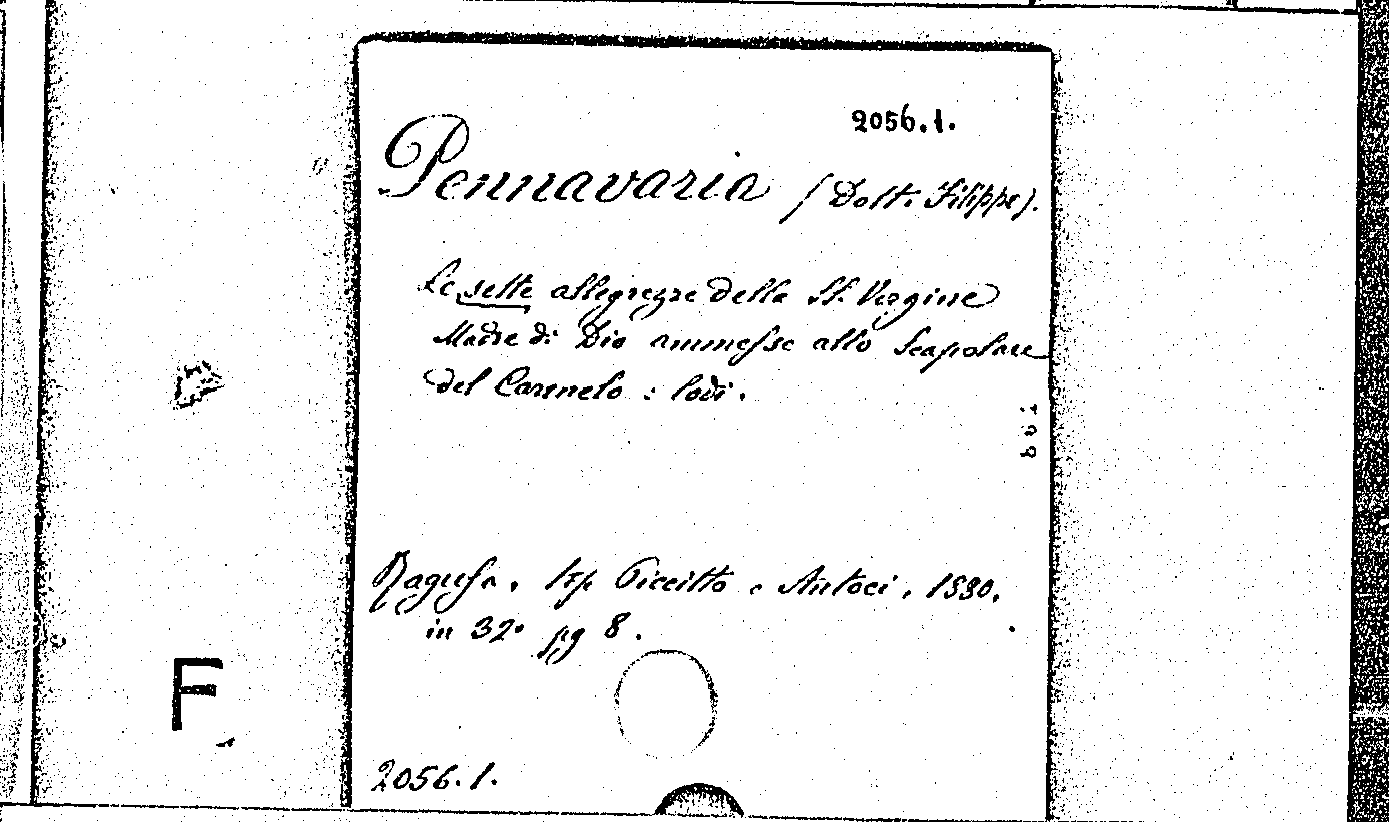 2056.1.
Pennavaria (Dott. Filippo).
Le sette allegrezze della SS. Vergine
Madre di Dio ammesse allo Scapolare
del Carmelo : lodi.
Ragusa, tip. Piccitto e Antoci, 1880,
in 32° pg 8.
F
2056.1.